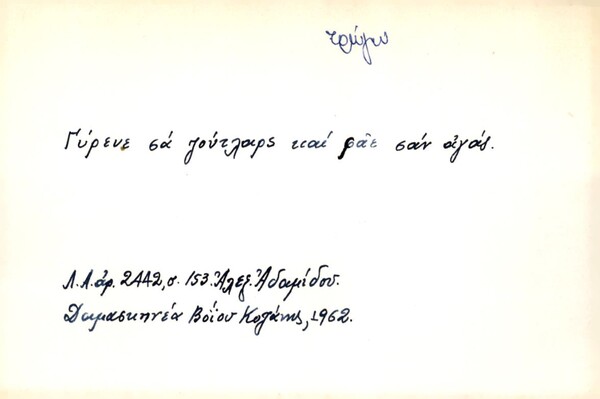 τρώγω
Γύρευε σά ζούτλαρς καί φᾶε σάν ἀγάς.
Λ.Α. ἀρ. 2442, σ. 153. Ἀλεξ. Ἀδαμίδου.
Δαμασκηνέα Βοΐου Κοζάνης, 1962.